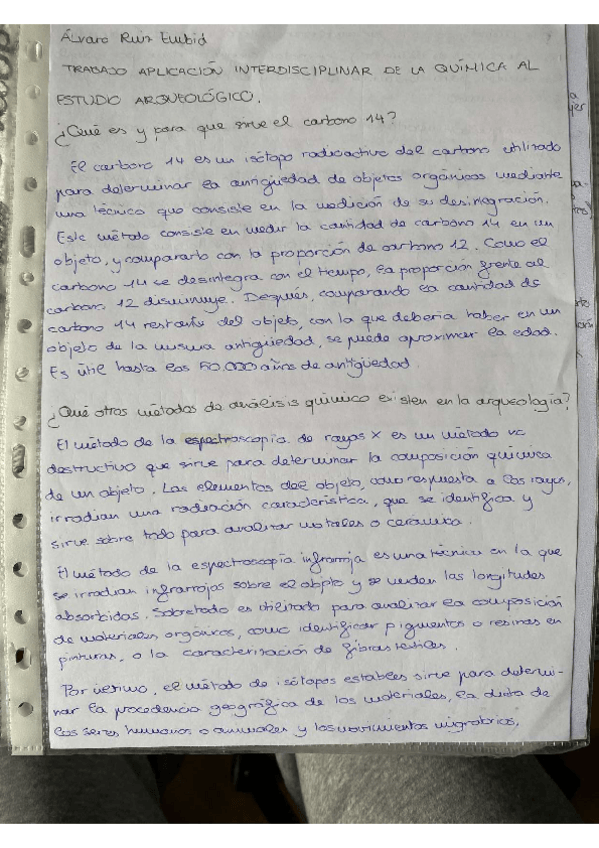 Álvaro Ruiz Eubid
TRABAJO APLICACIÓN INTERDISCIPLINAR DE LA QUÍMICA AL
ESTUDIO ARQUEOLÓGICO.
¿Qué es y para que sirve el carbono 14?
El carbono 14 es un isótopo radioactivo del carbono utilizado
para determinar la antigüedad de objetos orgánicos mediante
una técnica que consiste en la medición de su desintegración.
Este método consiste en medir la cantidad de carbono 14 en un
objeto, y compararlo con la proporción de carbono 12. Como el
carbono 14 se desintegra con el tiempo, la proporción frente al
carbono 12 disminuye. Después, comparando la cantidad de
carbono 14 restante del objeto, con la que debería haber en un
objeto de la misma antigüedad, se puede aproximar la edad.
Es útil hasta los 50.000 años de antigüedad.
¿Qué otros métodos de análisis químico existen en la arqueología?
El método de la espectroscopia de rayos X es un método no
destructivo que sirve para determinar la composición química
de un objeto. Los elementos del objeto, como respuesta a los rayos,
irradian una radiación característica, que se identifica y
sirve sobre todo para analizar metales o cerámica.
El método de la espectroscopía infrarroja es una técnica en la que
se irradian infrarrojos sobre el objeto y se miden las longitudes
absorbidas. Sobretodo es utilizado para analizar la composición
de materiales orgánicos, como identificar pigmentos o resinas en
pinturas, o la caracterización de fibras textiles.
Por último, el método de isótopos estables sirve para determi-
nar la procedencia geográfica de los materiales, la dieta de
los seres humanos o animales y los movimientos migratorios.